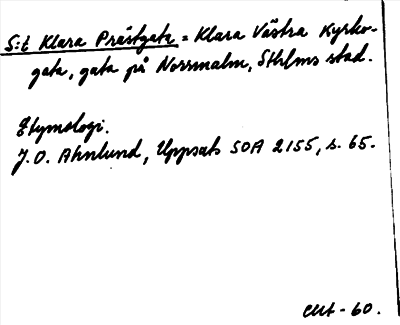 S:t Klara Prästgata = Klara Västra Kyrko-
gata, gata på Norrmalm, Sthlms stad.
Etymologi.
J.O. Ahnlund, Uppsats SOA 2155, s. 65.
- 60.